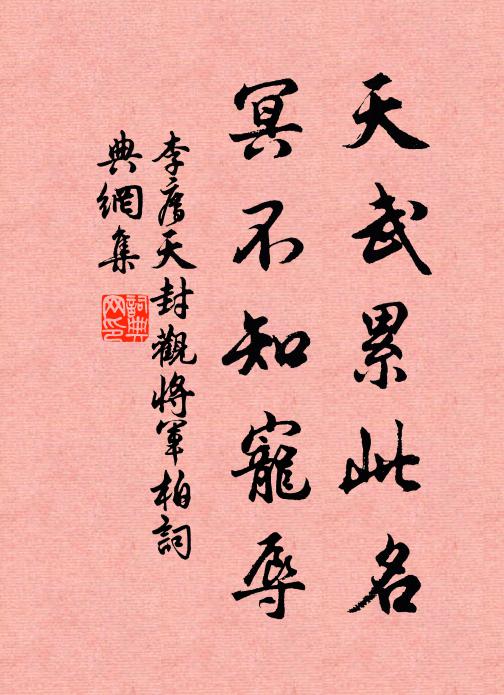 天武累此名
冥不知寵辱
李廌天封觀將軍柏詞
典網集
詞典網印